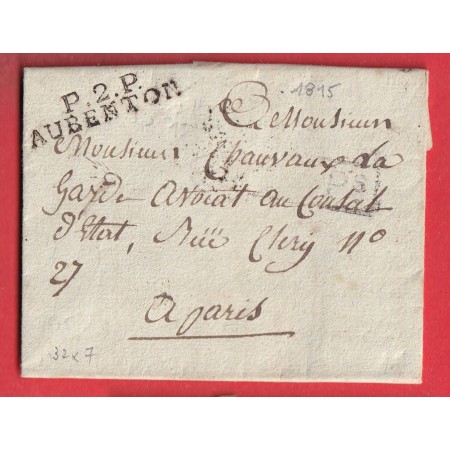 P.2.P.
AUBENTON
1815
A Monsieur
Monsieur Chauvaux de la
Garde avocat au Conseil
d'Etat, Rüë Clery N°
27
a paris
32 x 7